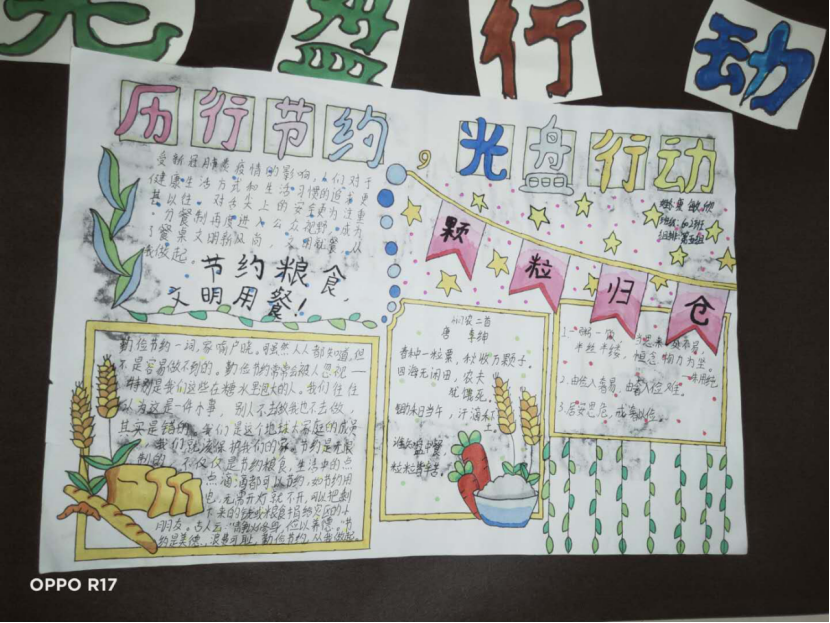 光盘行动
厉行节约
光盘行动
受新冠肺炎疫情的影响,人们对于
健康生活方式和生活习惯的追求更
甚以往。对舌尖上的安全更为注重
分餐制再度进入公众视野,成为
了餐桌文明新风尚,文明征餐,从
我做起。
节约粮食,
文明用餐!
颗
粒
归
仓
班级:六2班
勤俭节约一词,家喻户晓。可虽然人人都知道,但
不是容易做不到的。勤俭节约常常会被人忽视—
特别是我们这些在糖水里泡大的人。我们往往
认为这是一件小事,别人不去做我也不去做,
其实是错的。我们是这个地球大家庭的成员
,我们就应保护我们的家。节约是无限
制的,不仅仅是节约粮食,生活中的点
点滴滴都可以节约,如节约用
电,无需开灯就不开,可以把剩
小朋友。古人云
约是美德,浪费可耻,勤俭节约,从我做起。
悯农二首
唐 李绅
春种一粒粟,秋收万颗子。
四海无闲田,农夫
犹饿死。
锄禾日当午,汗滴禾下
土。
谁知盘中餐
粒粒皆辛苦。
1.一粥一饭,当思来处不易,
半丝半缕,恒念物力为艰。
2.由俭入奢易,由奢入俭难。
3.居安思危,戒奢以俭。
OPPO R17